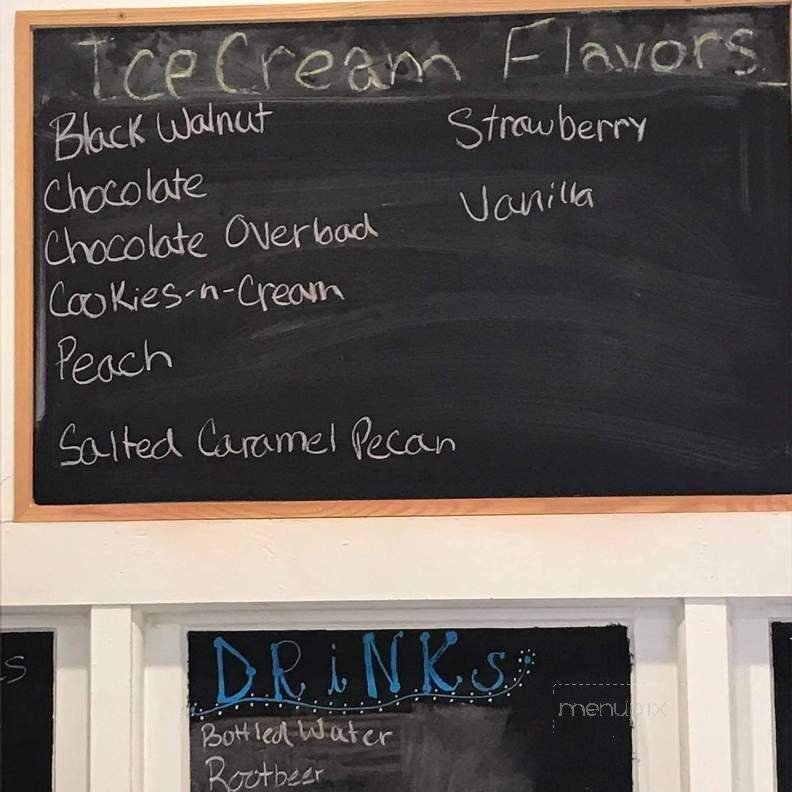 Ice Cream Flavors
Black Walnut
Chocolate
Chocolate Overbad
Cookies-n-Cream
Peach
Salted Caramel Pecan
Strawberry
Vanilla
DRiNKs
Bottled Water
Rootbeer
s
menupix